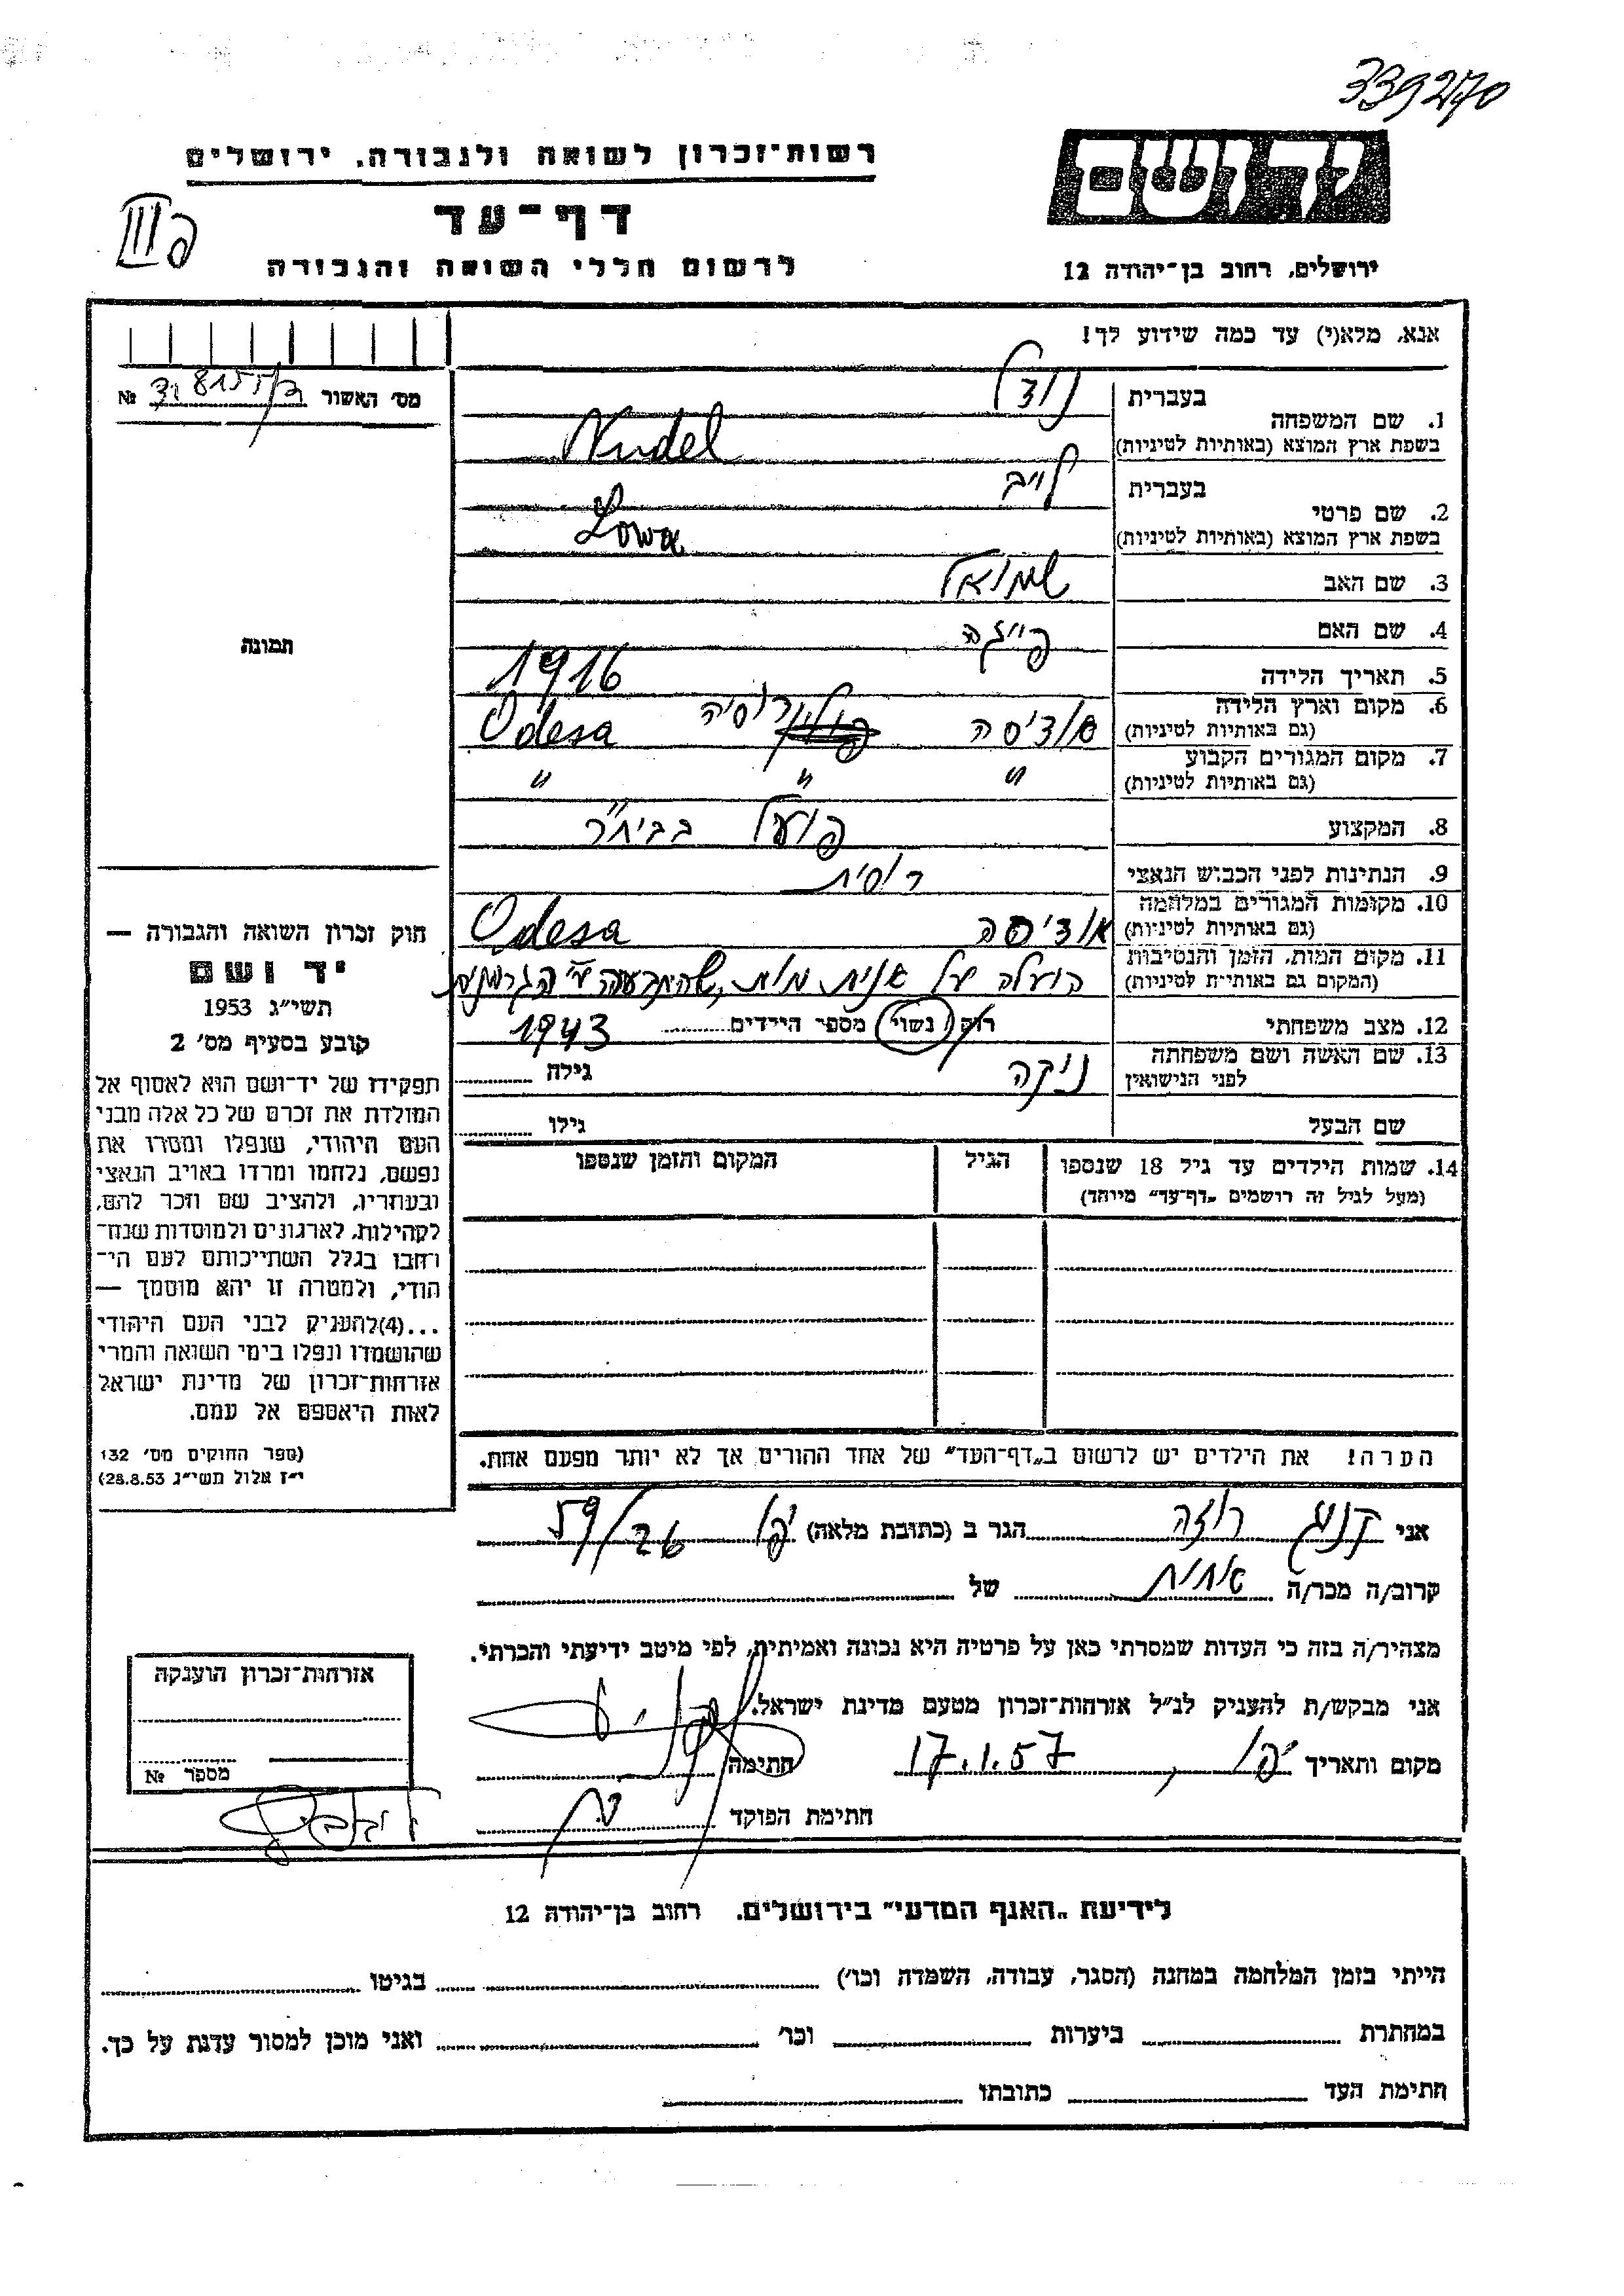 339270
יד ושם
רשות־זכרון לשואה ולגבורה, ירושלים
דף־עד
לרשום חללי השואה והגבורה
ירושלים, רחוב בן־יהודה 12
אנא, מלא(י) עד כמה שידוע לך!
מס׳ האשור №
1. שם המשפחה
בעברית נודל
בשפת ארץ המוצא (באותיות לטיניות) Nudel
2. שם פרטי
בעברית לייב
בשפת ארץ המוצא (באותיות לטיניות) Lowa
3. שם האב שמואל
4. שם האם פייגה
5. תאריך הלידה 1916
6. מקום וארץ הלידה
(גם באותיות לטיניות) אודיסה רוסיה Odesa
7. מקום המגורים הקבוע
(גם באותיות לטיניות) " " "
8. המקצוע פועל בביח"ר
9. הנתינות לפני הכבוש הנאצי רוסית
10. מקומות המגורים במלחמה
(גם באותיות לטיניות) אודיסה Odesa
11. מקום המות, הזמן והנסיבות
(המקום גם באותיות לטיניות) הועלה על אנית מות, שהוטבעה ע"י הגרמנים
12. מצב משפחתי רוק / נשוי מספר הילדים 1943
13. שם האשה ושם משפחתה
לפני הנישואין ניקה גילה
שם הבעל גילו
14. שמות הילדים עד גיל 18 שנספו הגיל המקום והזמן שנספו
(מעל לגיל זה רושמים „דף־עד״ מיוחד)
הערה! את הילדים יש לרשום ב„דף־העד״ של אחד ההורים אך לא יותר מפעם אחת.
תמונה
חוק זכרון השואה והגבורה —
יד ושם
תשי״ג 1953
קובע בסעיף מס׳ 2
תפקידו של יד־ושם הוא לאסוף אל
המולדת את זכרם של כל אלה מבני
העם היהודי, שנפלו ומסרו את
נפשם, נלחמו ומרדו באויב הנאצי
ובעוזריו, ולהציב שם וזכר להם,
לקהילות, לארגונים ולמוסדות שנח־
רחבו בגלל השתייכותם לעם הי־
הודי, ולמטרה זו יהא מוסמך —
...(4)להעניק לבני העם היהודי
שהושמדו ונפלו בימי השואה והמרי
אזרחות־זכרון של מדינת ישראל
לאות היאספם אל עמם.
(ספר החוקים מס׳ 132
י״ז אלול תשי״ג 28.8.53)
אני רוזה הגר ב (כתובת מלאה) יפו 59/26
קרוב/ה מכר/ה אחות של
מצהיר/ה בזה כי העדות שמסרתי כאן על פרטיה היא נכונה ואמיתית, לפי מיטב ידיעתי והכרתי.
אני מבקש/ת להעניק לנ״ל אזרחות־זכרון מטעם מדינת ישראל.
מקום ותאריך יפו, 17.1.57 חתימה
חתימת הפוקד
אזרחות־זכרון הוענקה
מספר №
לידיעת „האגף המדעי״ בירושלים, רחוב בן־יהודה 12
הייתי בזמן המלחמה במחנה (הסגר, עבודה, השמדה וכו׳) בגיטו
במחתרת ביערות וכו׳ ואני מוכן למסור עדות על כך.
חתימת העד כתובתו